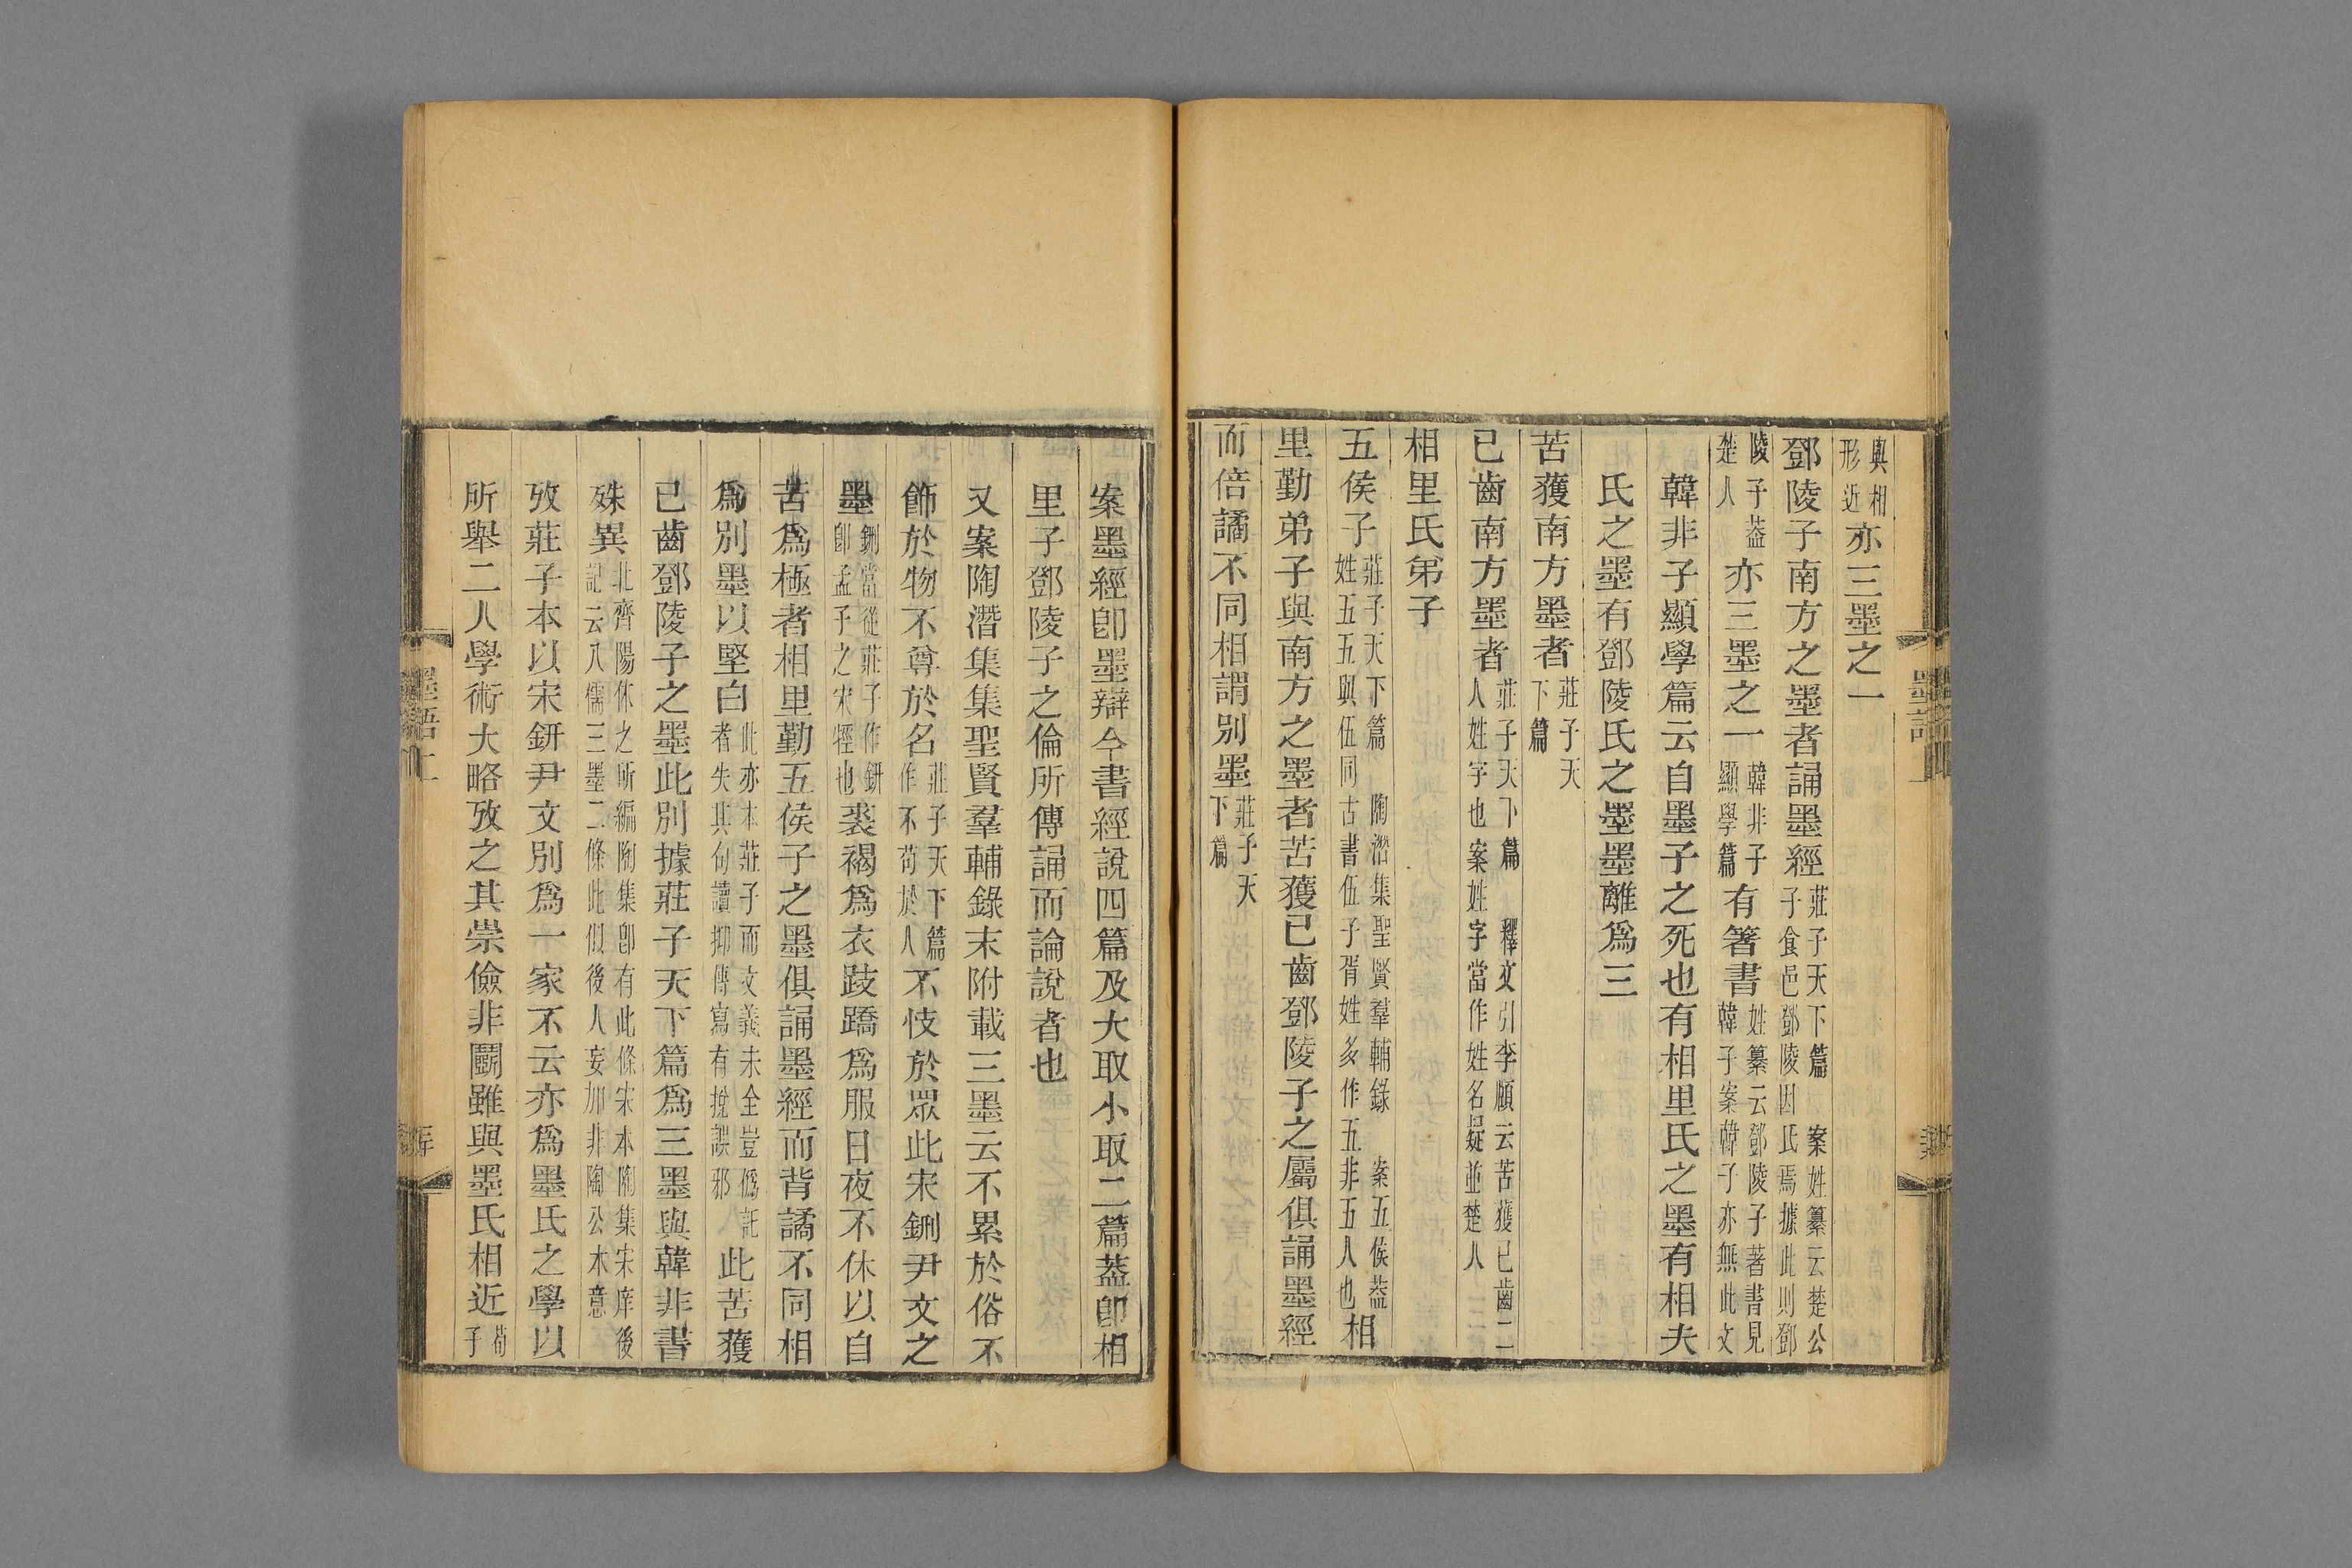 與相形近亦三墨之一
鄧陵子南方之墨者誦墨經莊子天下篇 案姓纂云楚公子食邑鄧陵因氏焉據此則鄧
陵子葢楚人亦三墨之一韓非子顯學篇有箸書姓纂云鄧陵子著書見韓子案韓子亦無此文
韓非子顯學篇云自墨子之死也有相里氏之墨有相夫
氏之墨有鄧陵氏之墨墨離爲三
苦獲南方墨者莊子天下篇
已齒南方墨者莊子天下篇 釋文引李頤云苦獲已齒二人姓字也案姓字當作姓名疑並楚人
相里氏弟子
五侯子莊子天下篇 陶潛集聖賢羣輔錄 案五侯葢姓五五與伍同古書伍子胥姓多作五非五人也相
里勤弟子與南方之墨者苦獲已齒鄧陵子之屬俱誦墨經
而倍譎不同相謂別墨莊子天下篇
案墨經卽墨辯今書經說四篇及大取小取二篇葢卽相
里子鄧陵子之倫所傳誦而論說者也
又案陶潛集集聖賢羣輔錄末附載三墨云不累於俗不
飾於物不尊於名莊子天下篇作不苟於人不忮於眾此宋鈃尹文之
墨鉶當從莊子作鈃卽孟子之宋牼也裘褐爲衣跂蹻爲服日夜不休以自
苦爲極者相里勤五侯子之墨俱誦墨經而背譎不同相
爲別墨以堅白此亦本莊子而文義未全豈僞託者失其句讀抑傳寫有挩誤邪此苦獲
已齒鄧陵子之墨此別據莊子天下篇爲三墨與韓非書
殊異北齊陽休之所編陶集卽有此條宋本陶集宋庠後記云八儒三墨二條此似後人妄加非陶公本意
攷莊子本以宋鈃尹文別爲一家不云亦爲墨氏之學以
所舉二人學術大略攷之其崇儉非鬭雖與墨氏相近荀子
墨語上